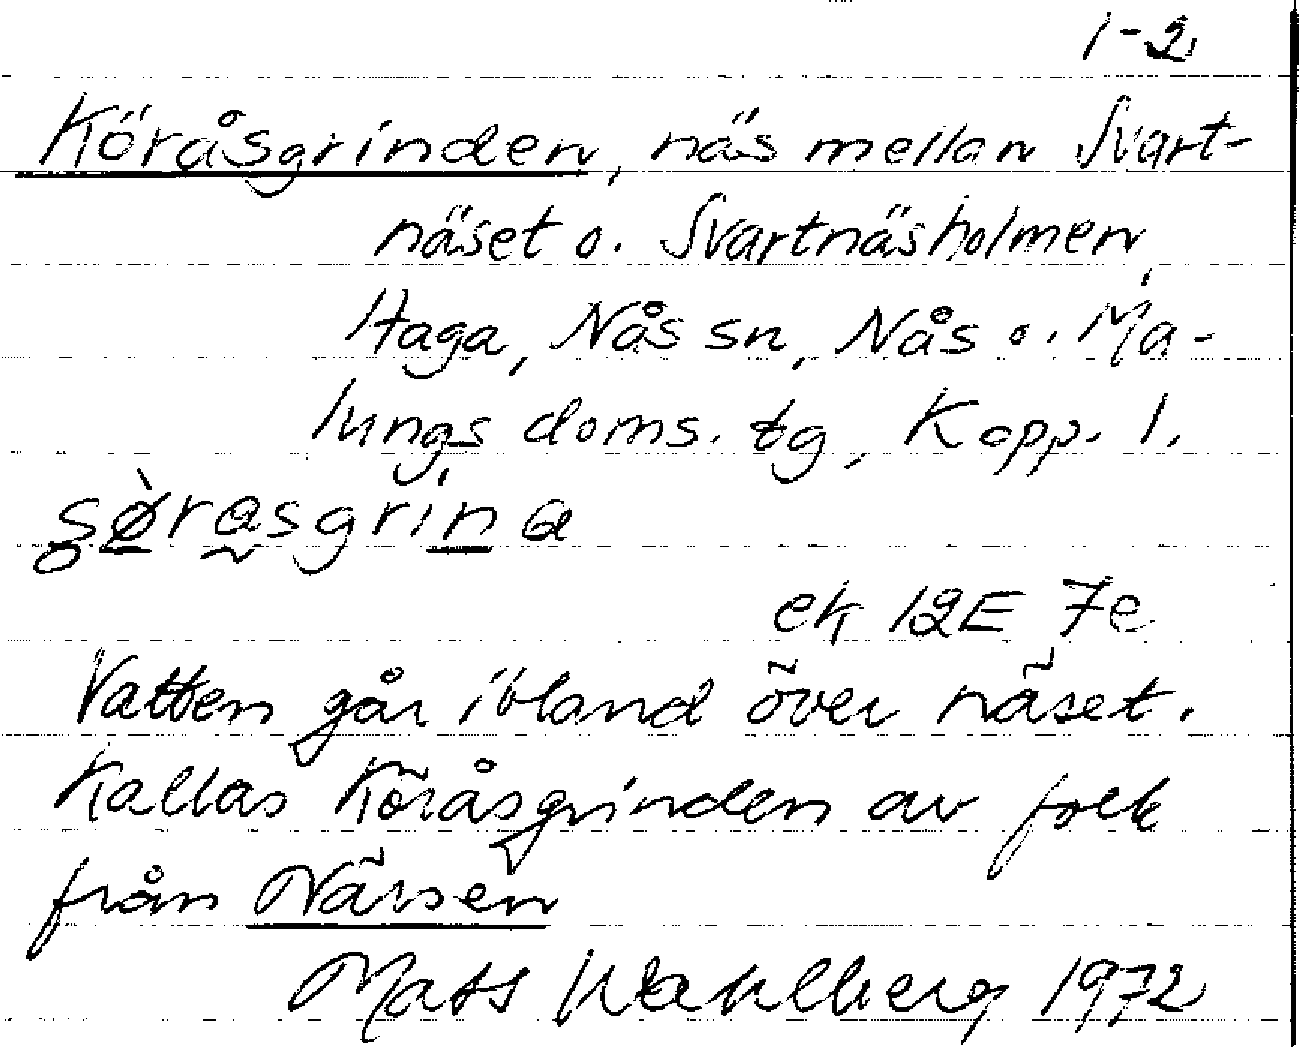 1-2
Köråsgrinden, näs mellan Svart-
näset o. Svartnäsholmen,
Haga, Nås sn, Nås o. Ma-
lungs doms. tg, Kopp. l.
sø̀rasgrína
ek 12E 7e
Vatten går ibland över näset.
Kallas Köråsgrinden av folk
från Närsen
Mats Wahlberg 1972